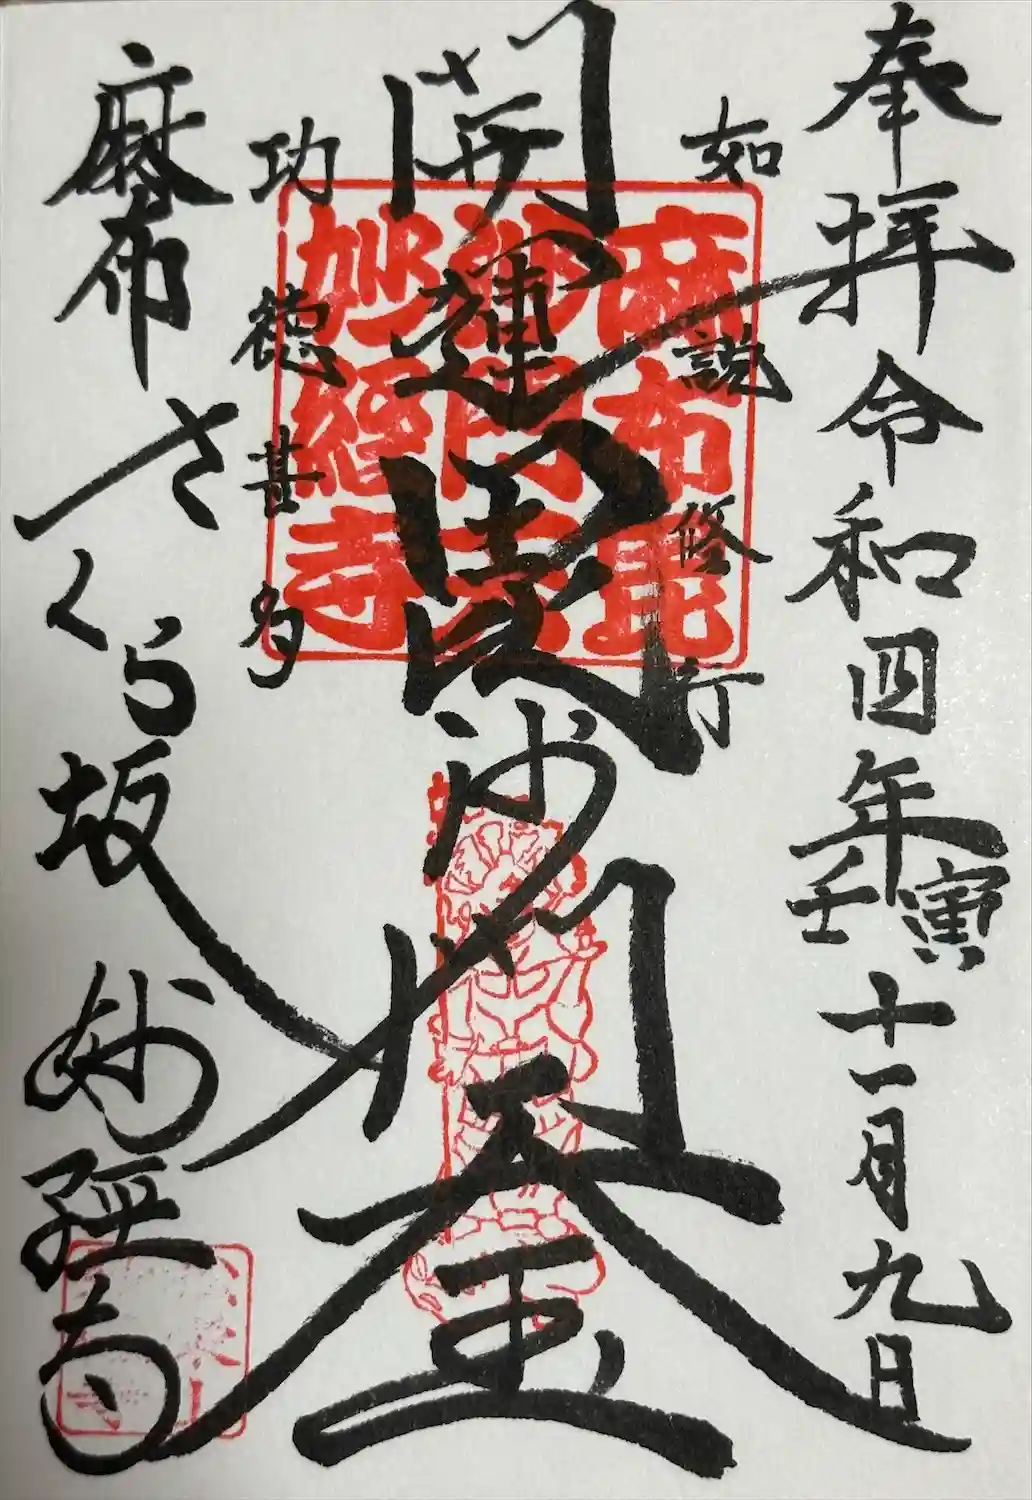 奉拝 令和四年壬寅十一月九日
如説修行
開運毘沙門天王
功徳甚多
麻布さくら坂 妙経寺
麻布毘
沙門天
妙経寺